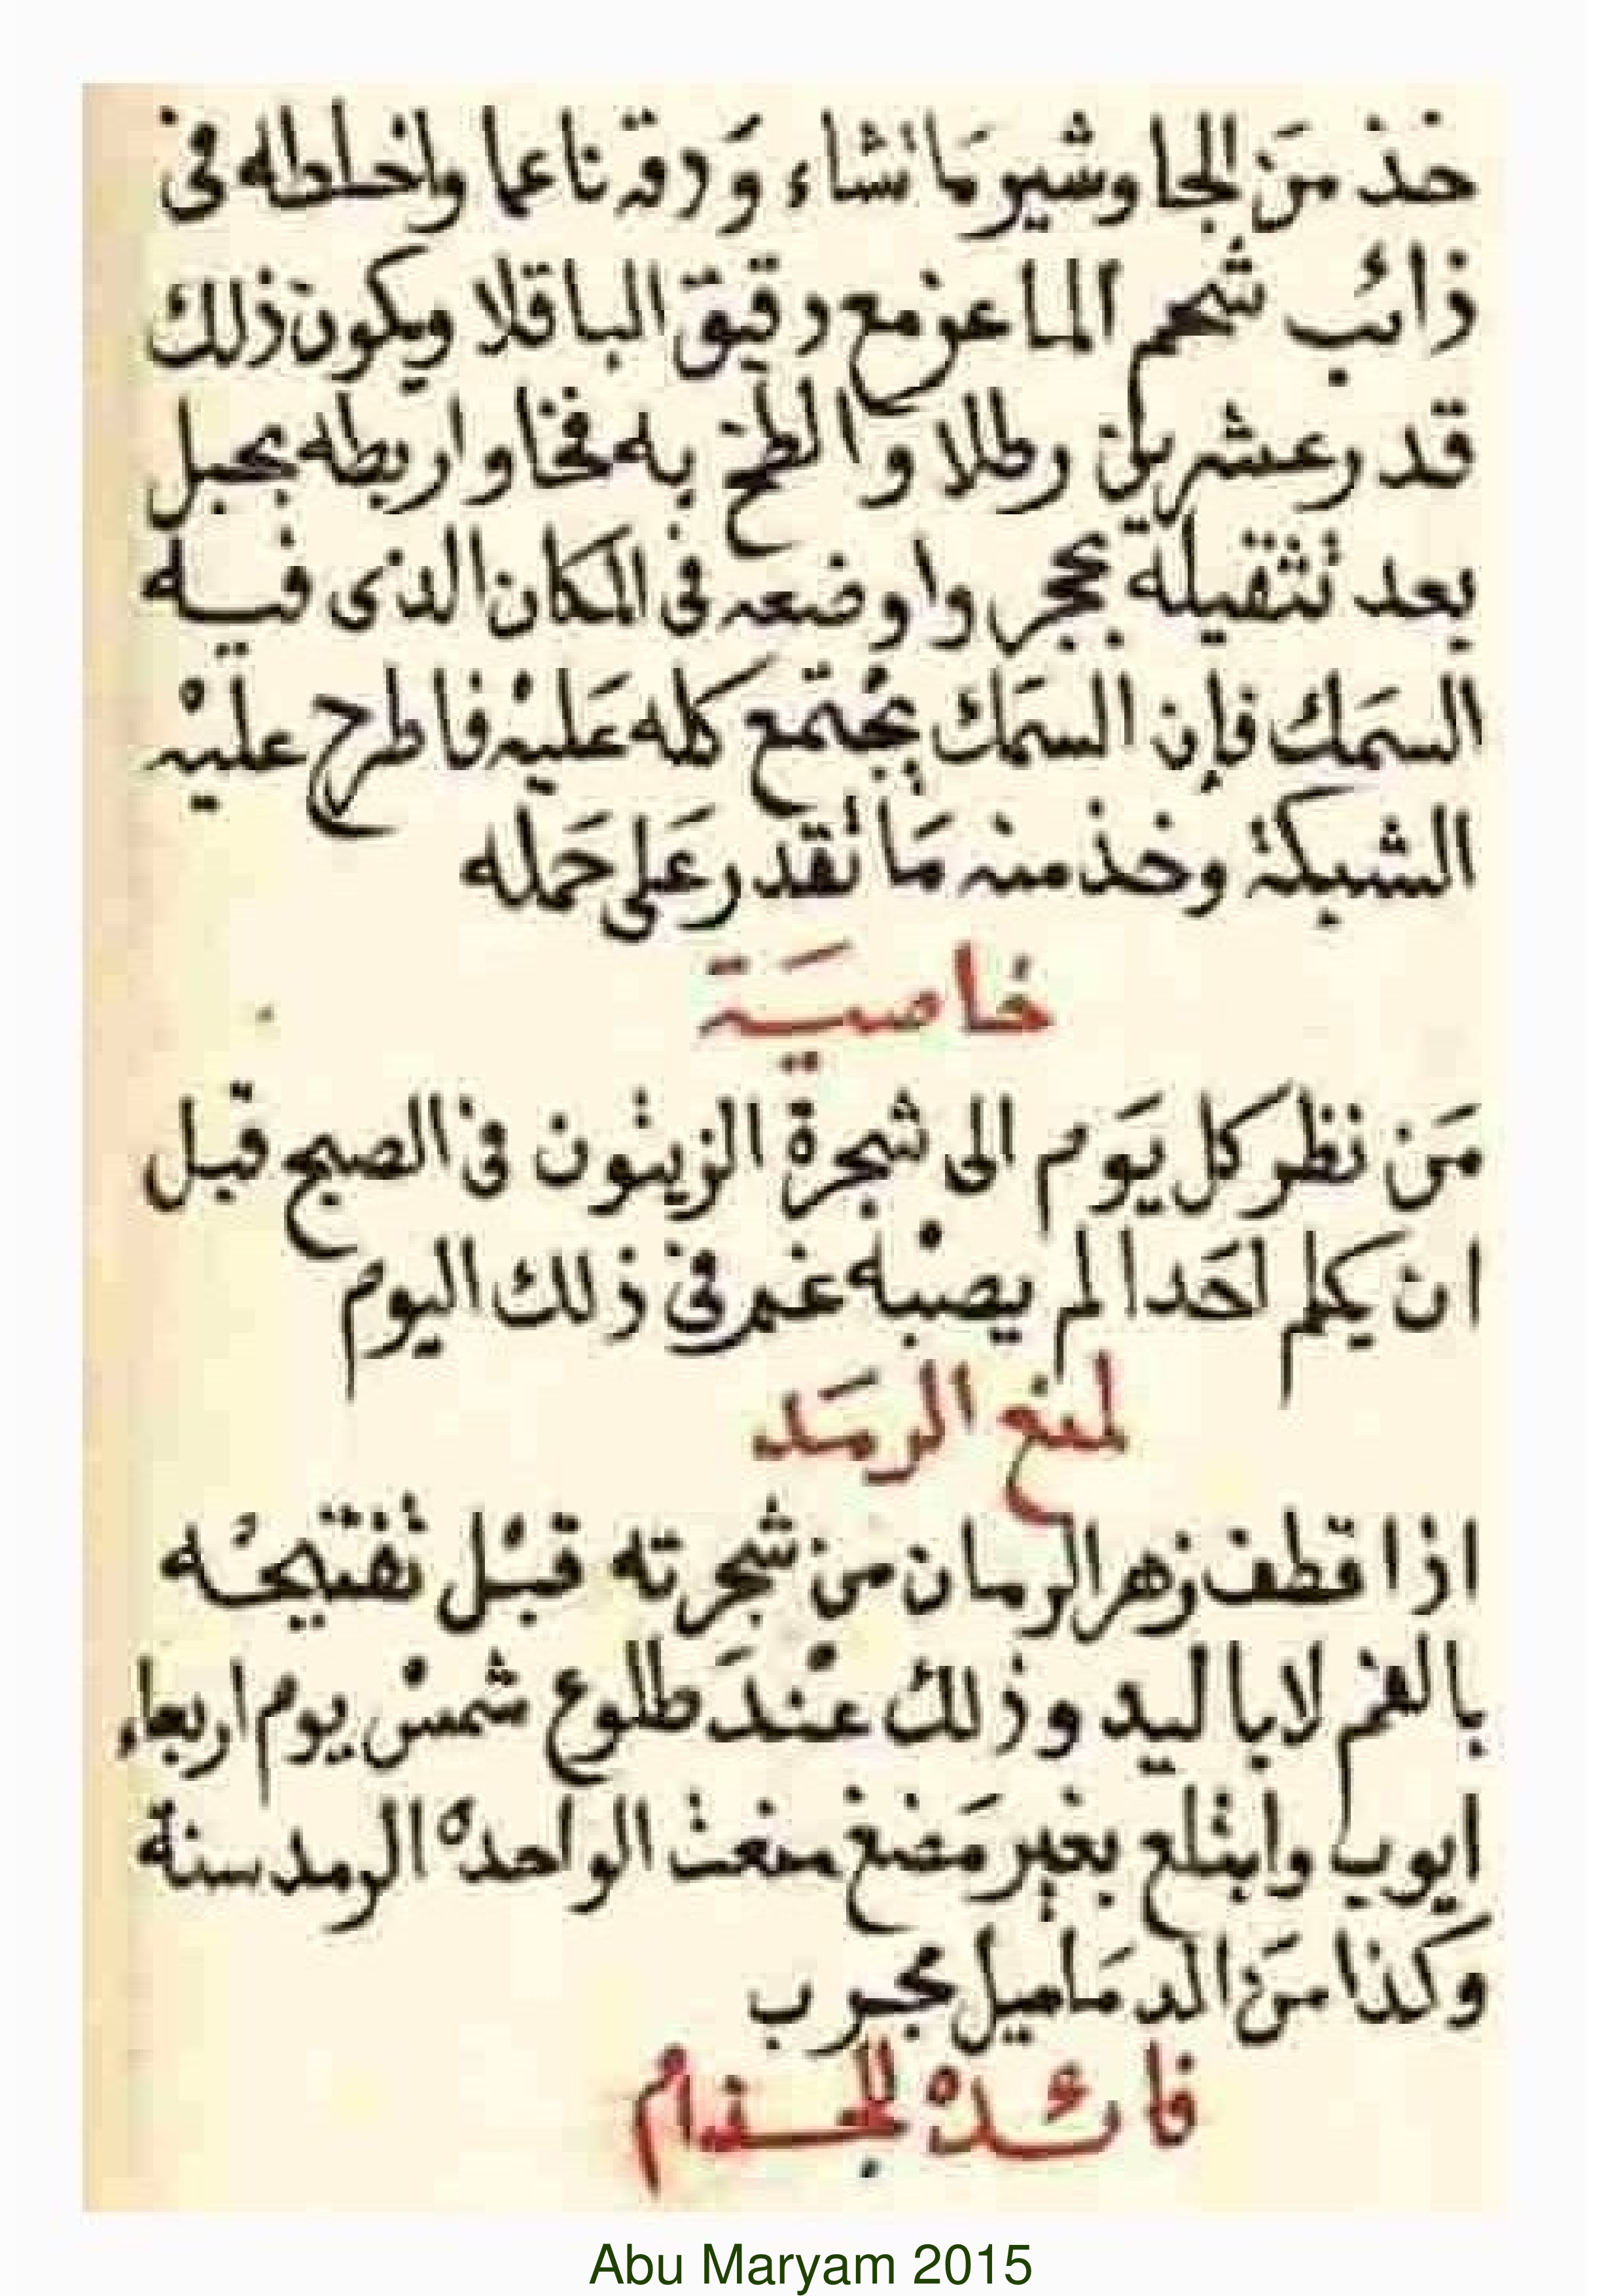 خذ مَن الجاوشير مَا تشاء وَ دقه ناعما واخلطه فى
ذائب شحم الماعز مع دقيق الباقلا ويكون ذلك
قدر عشرين رطلا والطخ به فخا واربطه بحبل
بعد تثقيلة بحجر واوضعه فى المكان الذى فيه
السمَك فإن السمَك يجْتمع كله عَليْه فاطرح عليْه
الشبكة وخذ منه مَا تقدر عَلى حَمله
خاصيَة
مَن نظر كل يَوم الى شجرة الزيتون فى الصبح قبل
ان يكلم احَدا لم يصبْه غم فى ذلك اليوم
لمنع الرمَد
اذا قطف زهر الرمان من شجرته قبْل تفتيحُه
بالفم لا باليد وذلك عنْدَ طلوع شمسْ يوم اربعاء
ايوب وابتلع بغير مَضغ منعت الواحدة الرمد سنة
وَكذا مَن الدمَاميل مجرب
فائدة للجذام
Abu Maryam 2015